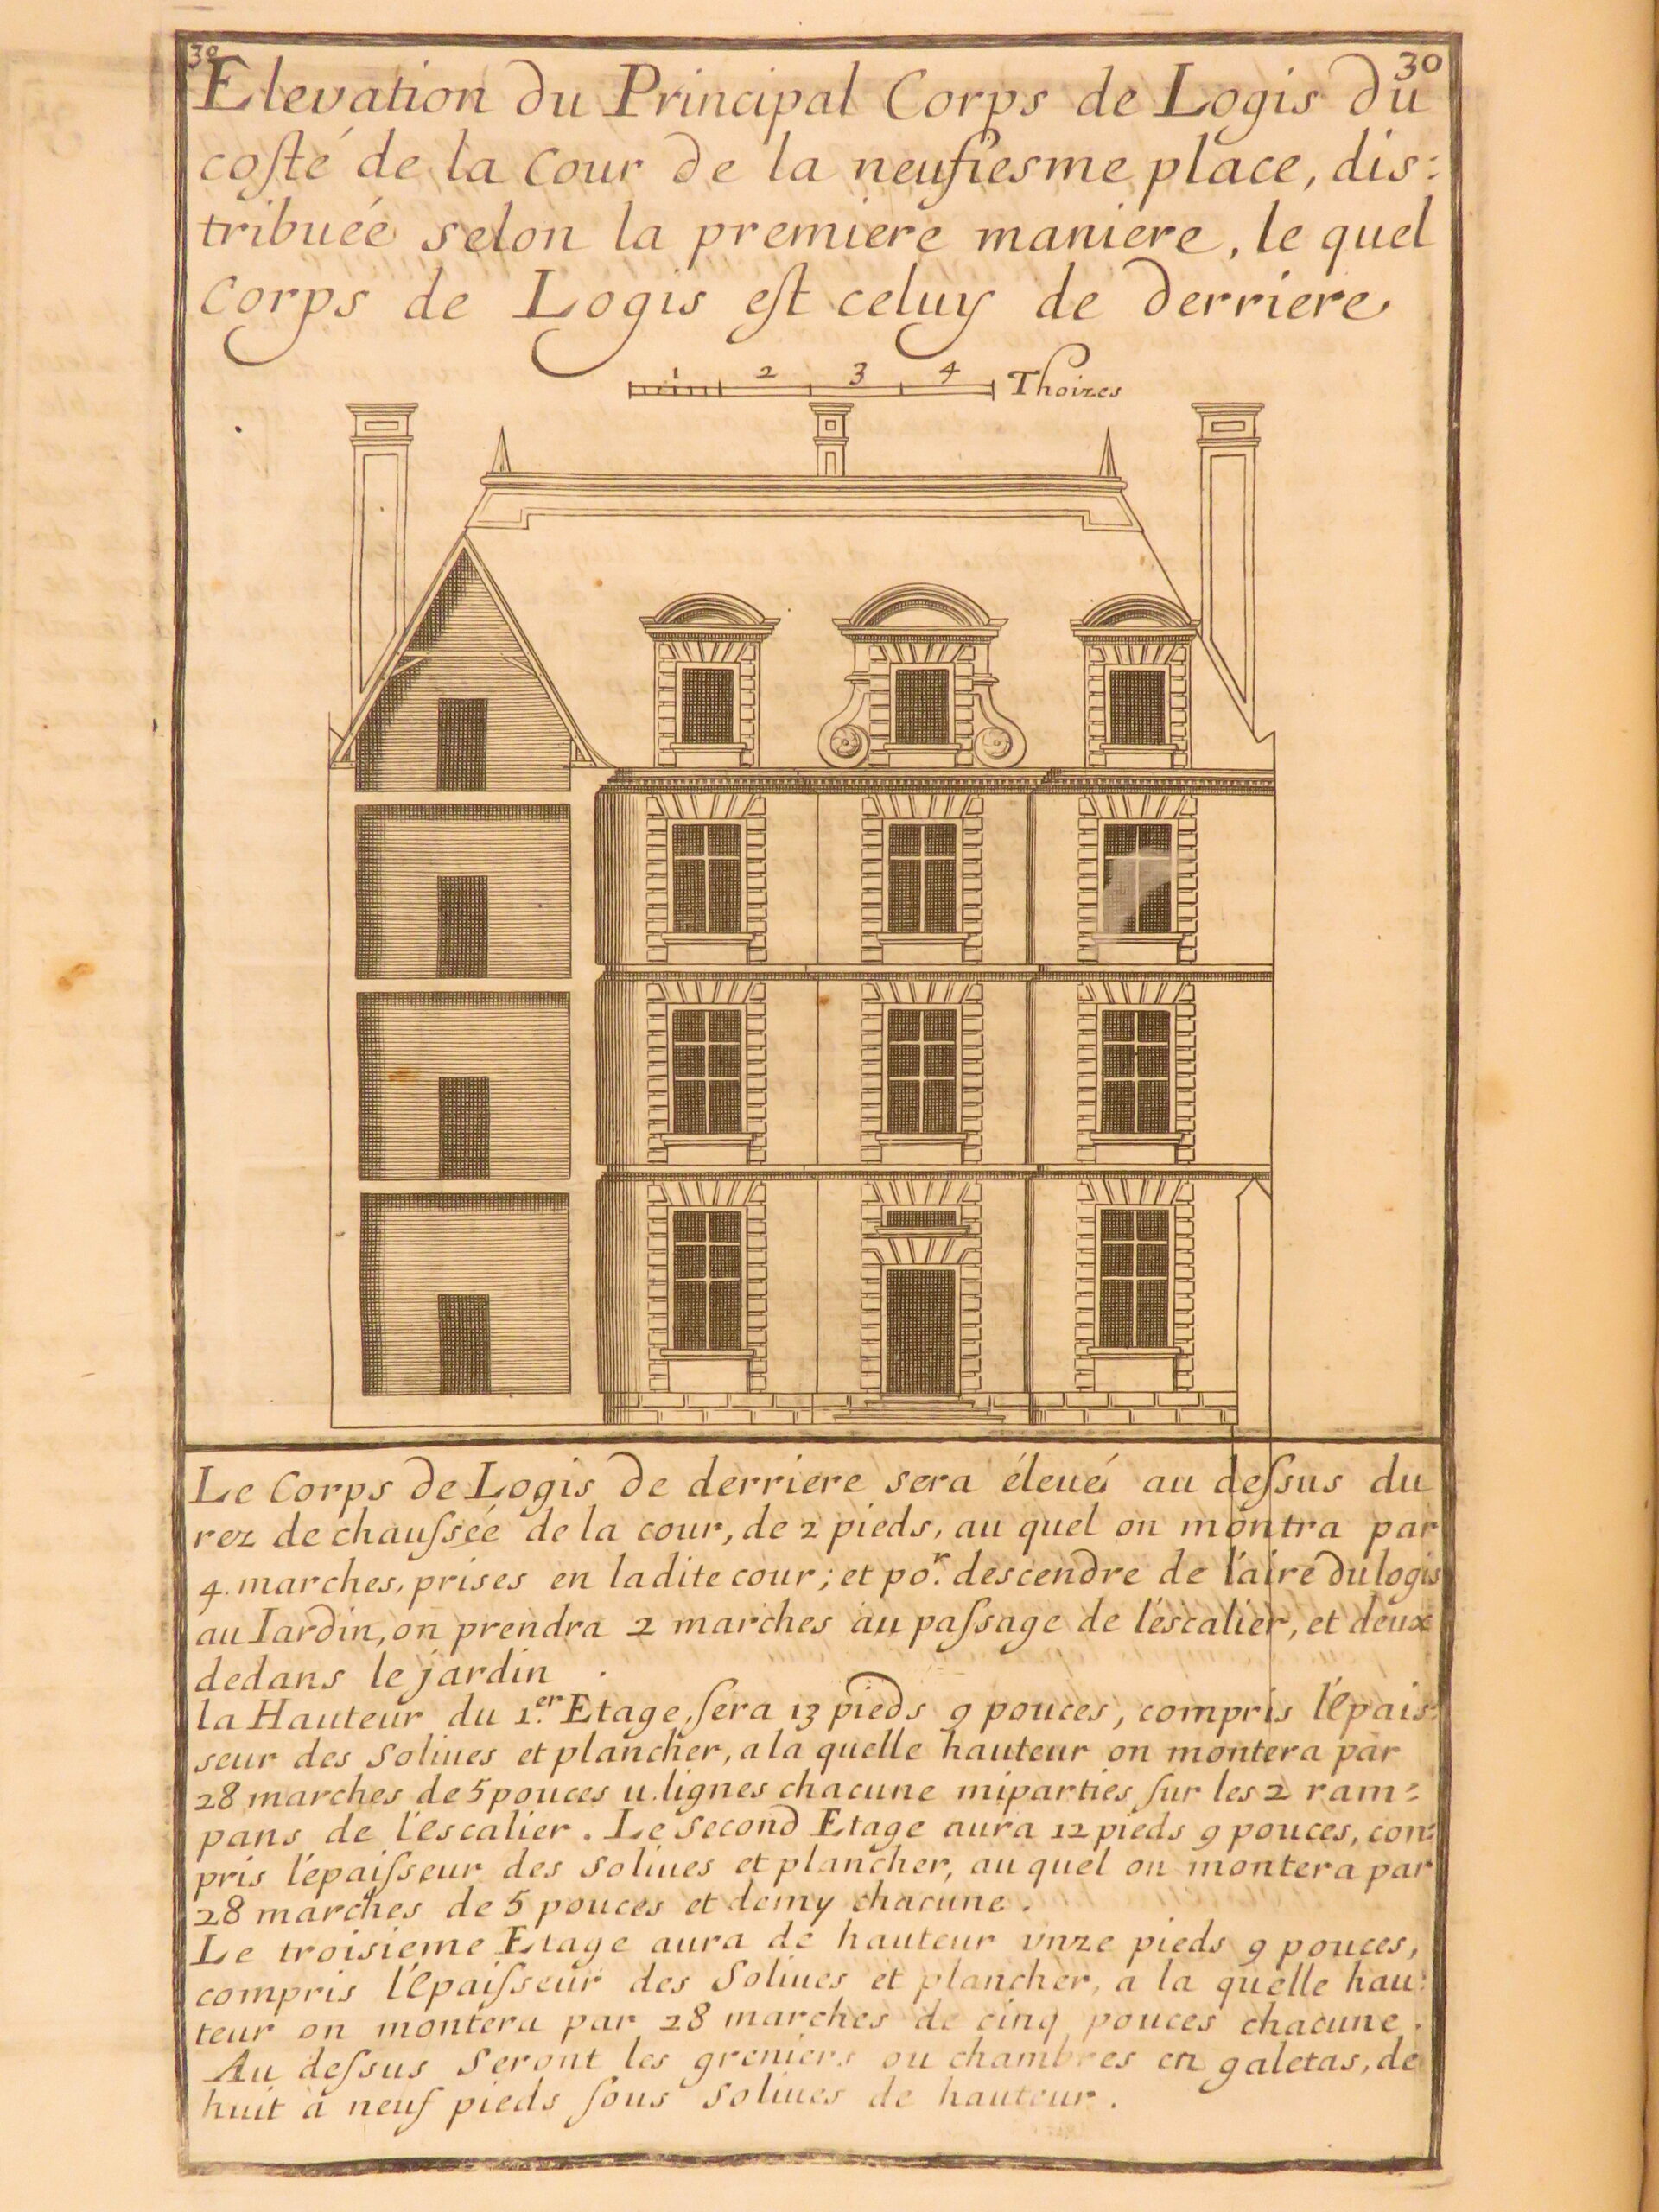 30 30
Elevation du Principal Corps de Logis du
coſté de la Cour de la neufiesme place, dis:
tribuée selon la premiere maniere, le quel
Corps de Logis eſt celuy de derriere
1 2 3 4 Thoizes
Le Corps de Logis de derriere sera éleué au deſsus du
rez de chauſsée de la cour, de 2 pieds, au quel on montra par
4. marches, prises en ladite cour; et po.r descendre de l'aire du logis
au Iardin, on prendra 2 marches au paſsage de l'escalier, et deux
dedans le jardin .
la Hauteur du 1.er Etage, ſera 13 pieds 9 pouces, compris l'épais:
seur des Soliues et plancher, a la quelle hauteur on montera par
28 marches de 5 pouces 11. lignes chacune miparties ſur les 2 ram:
pans de l'escalier. Le second Etage aura 12 pieds 9 pouces, con:
pris l'épaiſseur des soliues et plancher, au quel on montera par
28 marches de 5 pouces et demy chacune.
Le troisieme Etage aura de hauteur vnze pieds 9 pouces,
compris l'épaiſseur des Soliues et plancher, a la quelle hau:
teur on montera par 28 marches de cinq pouces chacune.
Au deſsus seront les greniers ou chambres en galetas, de
huit à neuf pieds ſous soliues de hauteur.